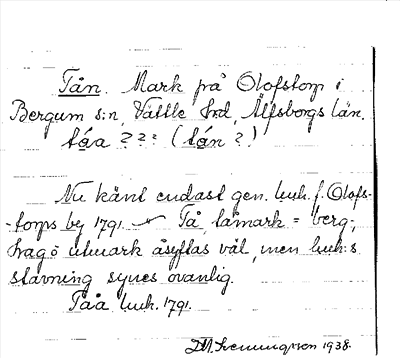 Tån. Mark på Olofstorp i
Bergum s:n, Vättle hrd, Älfsborgs län.
tåa ??? (tån ?)
Nu känt endast gen. luh. f. Olofs-
-torps by 1791. Tå, tåmark = berg-,
hag o utmark åsyftas väl, men luh:s
stavning synes ovanlig.
Tåå luh. 1791.
1938.